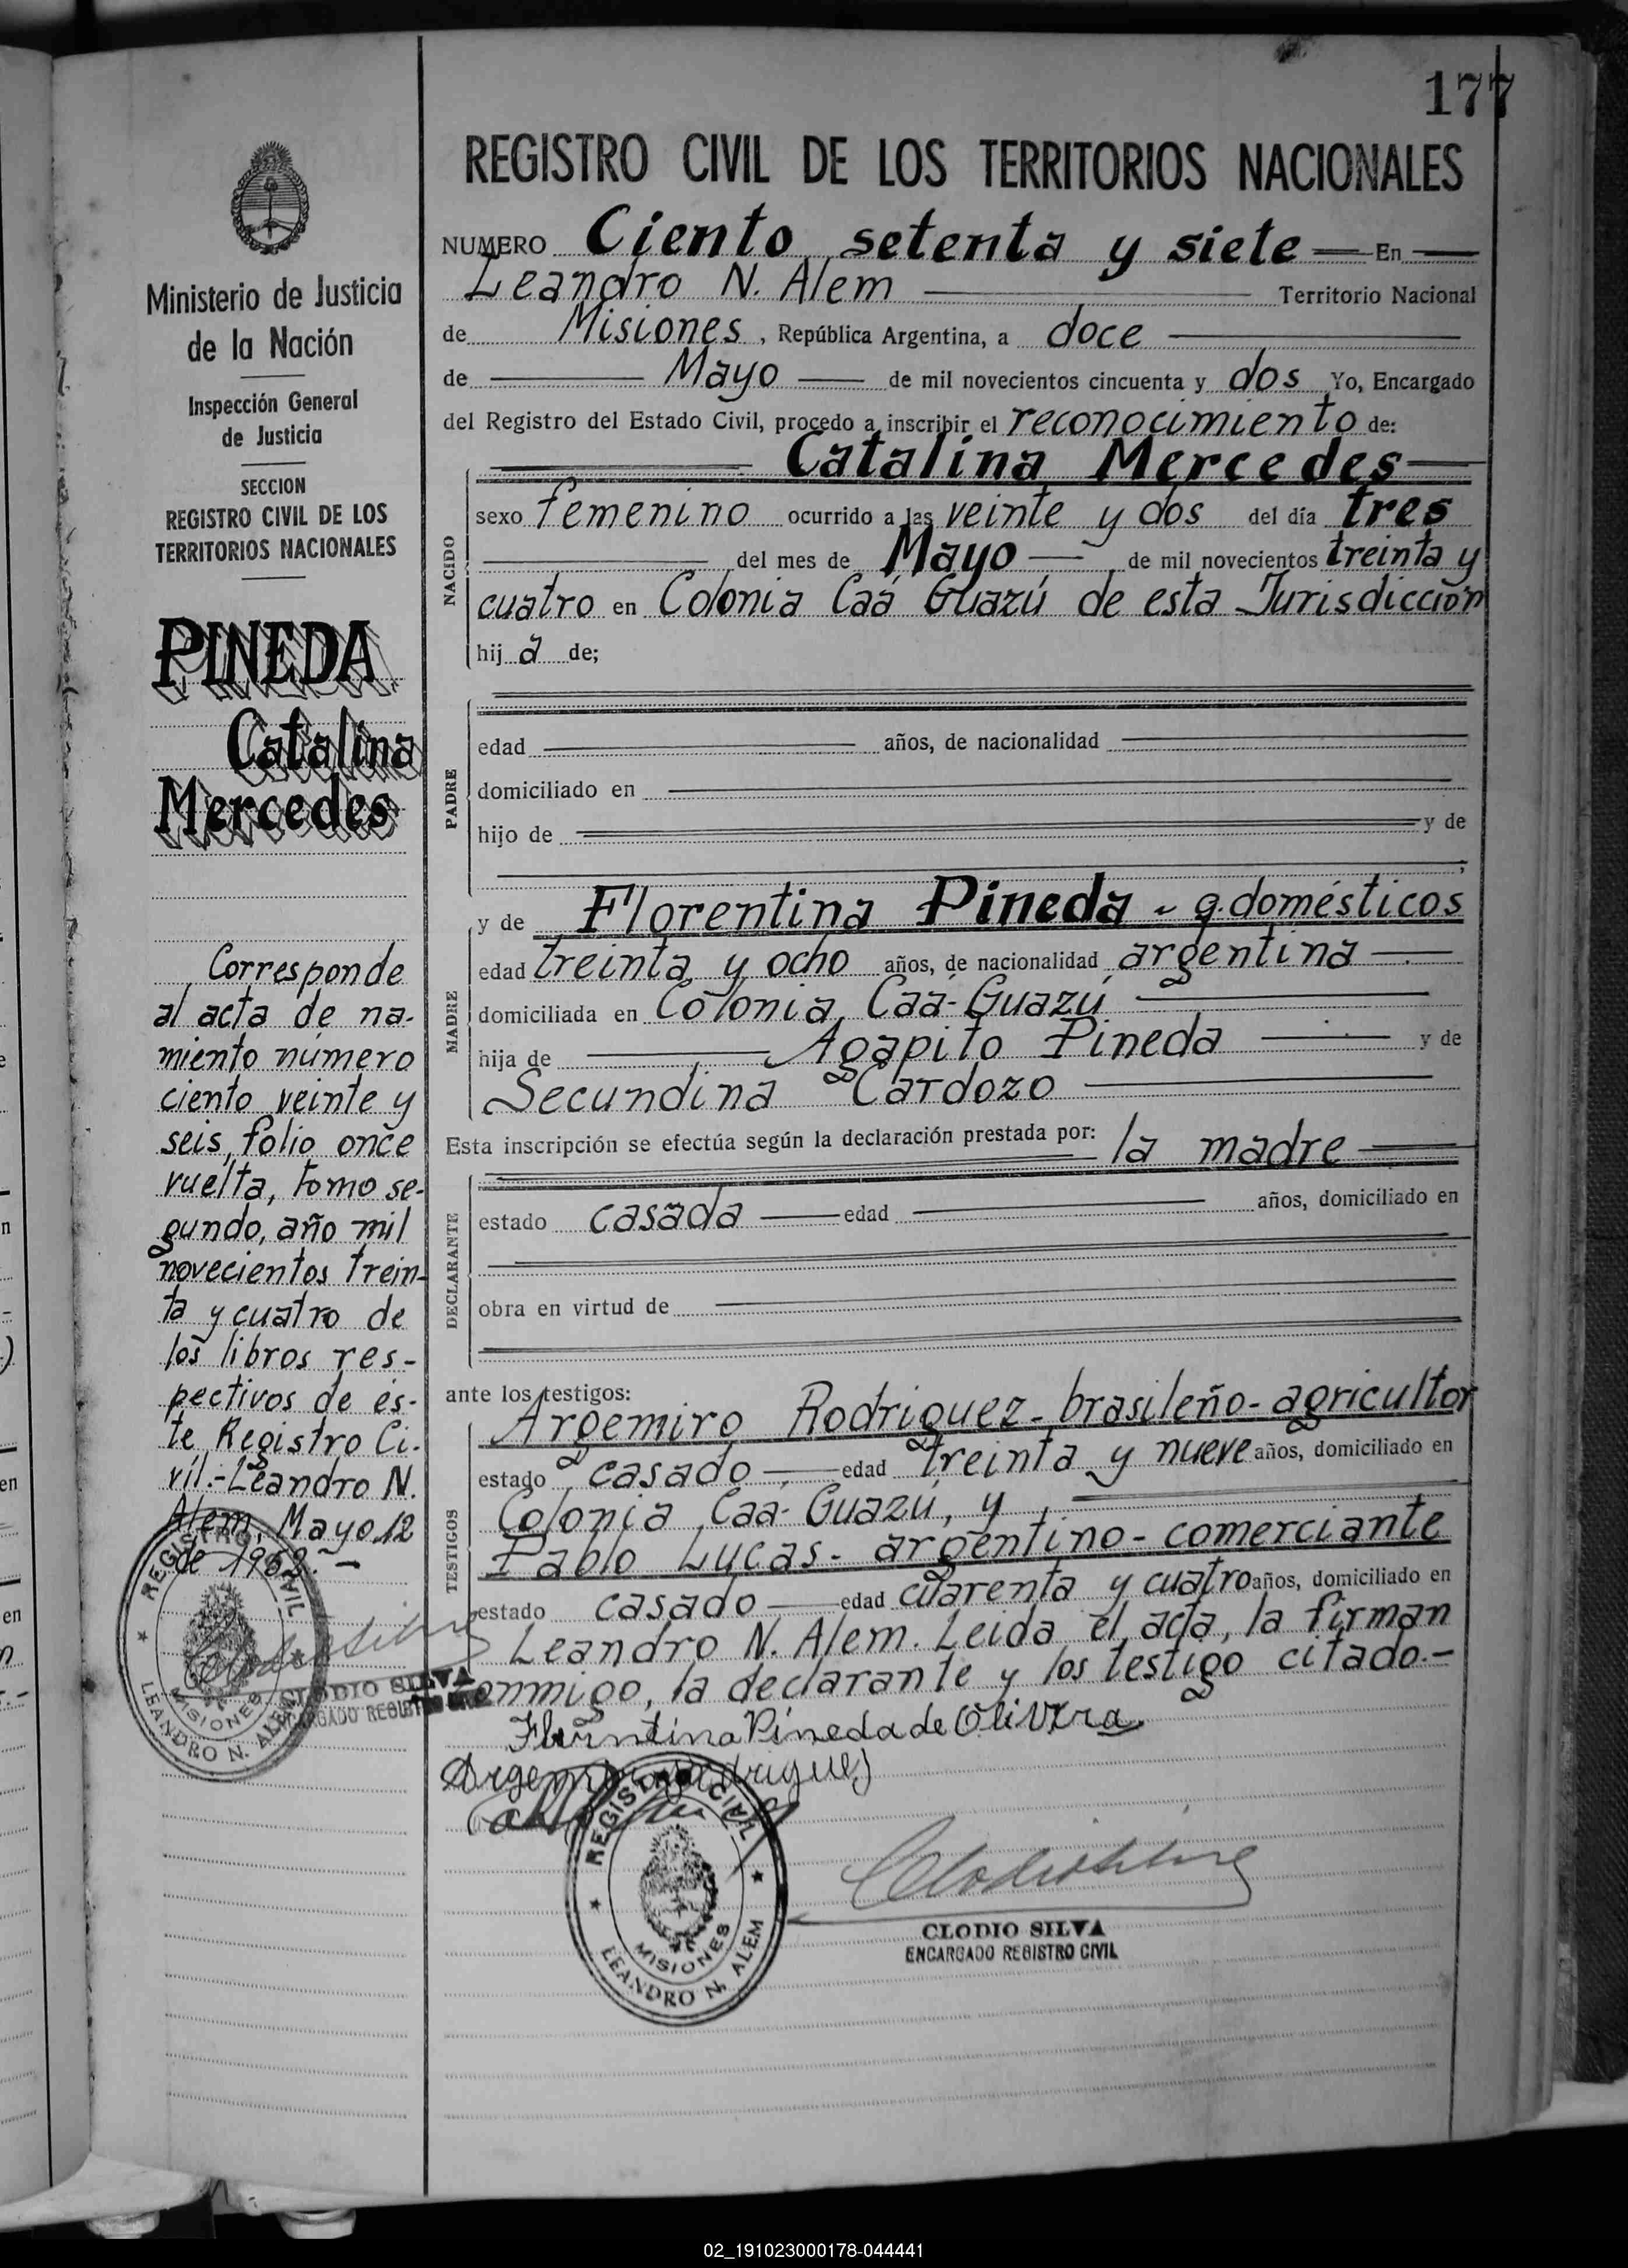 177
REGISTRO CIVIL DE LOS TERRITORIOS NACIONALES
NUMERO Ciento setenta y siete En
Leandro N. Alem Territorio Nacional
de Misiones, República Argentina, a doce
de Mayo de mil novecientos cincuenta y dos Yo, Encargado
del Registro del Estado Civil, procedo a inscribir el reconocimiento de:
NACIDO
Catalina Mercedes
sexo femenino ocurrido a las veinte y dos del día tres
del mes de Mayo de mil novecientos treinta y
cuatro en Colonia Caá Guazú de esta Jurisdicción
hij a de;
PADRE
edad años, de nacionalidad
domiciliado en
hijo de y de
;
MADRE
y de Florentina Pineda - q. domésticos
edad treinta y ocho años, de nacionalidad argentina
domiciliada en Colonia Caá-Guazú
hija de Agapito Pineda y de
Secundina Cardozo
Esta inscripción se efectúa según la declaración prestada por: la madre
DECLARANTE
estado casada edad años, domiciliado en
obra en virtud de
ante los testigos:
TESTIGOS
Argemiro Rodriguez - brasileño - agricultor
estado casado edad treinta y nueve años, domiciliado en
Colonia Caá-Guazú, y
Pablo Lucas - argentino - comerciante
estado casado edad cuarenta y cuatro años, domiciliado en
Leandro N. Alem. Leida el acta, la firman
conmigo, la declarante y los testigo citado.-
Florentina Pineda de Olivera
Argemiro Rodrigues
REGISTRO CIVIL
MISIONES
LEANDRO N. ALEM
CLODIO SILVA
ENCARGADO REGISTRO CIVIL
Ministerio de Justicia
de la Nación
Inspección General
de Justicia
SECCION
REGISTRO CIVIL DE LOS
TERRITORIOS NACIONALES
PINEDA
Catalina
Mercedes
Corresponde
al acta de na-
miento número
ciento veinte y
seis, folio once
vuelta, tomo se-
gundo, año mil
novecientos trein-
ta y cuatro de
los libros res-
pectivos de és-
te Registro Ci-
vil.- Leandro N.
Alem, Mayo 12
de 1952.-
REGISTRO CIVIL
MISIONES
LEANDRO N. ALEM
CLODIO SILVA
ENCARGADO REGISTRO CIVIL
02_191023000178-044441